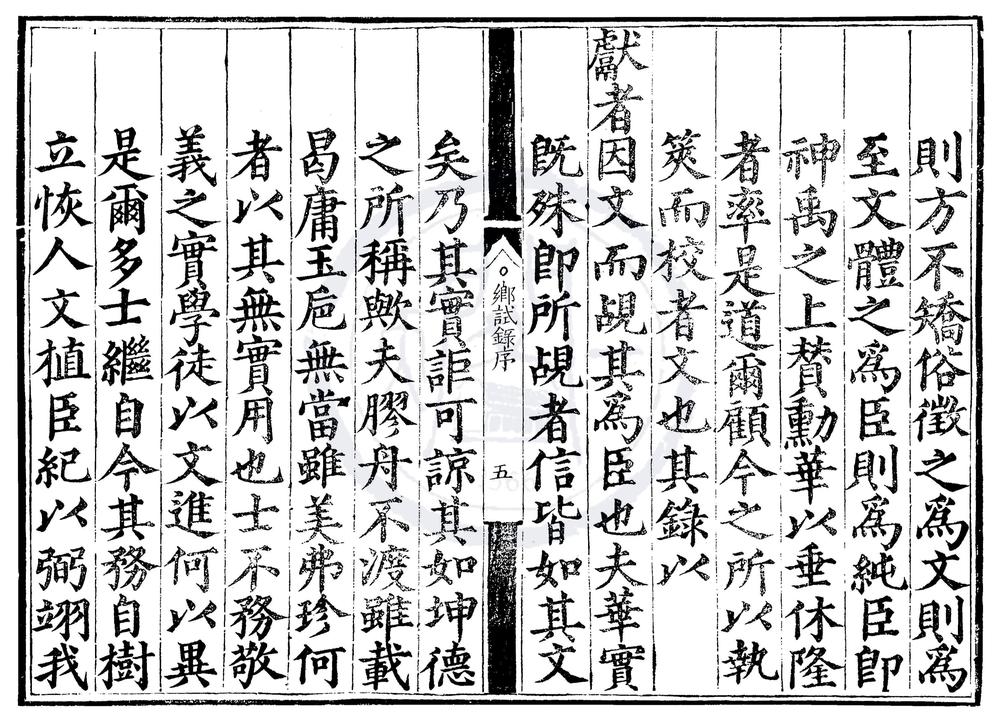 則方不矯俗徵之爲文則爲
至文體之爲臣則爲純臣卽
神禹之上贊勳華以垂休隆
者率是道爾顧今之所以執
筴而校者文也其錄以
獻者因文而覘其爲臣也夫華實
旣殊卽所覘者信皆如其文
鄕試錄序
五
矣乃其實詎可諒其如坤德
之所稱歟夫膠舟不渡雖載
曷庸玉巵無當雖美弗珍何
者以其無實用也士不務敬
義之實學徒以文進何以異
是爾多士繼自今其務自樹
立恢人文植臣紀以弼翊我